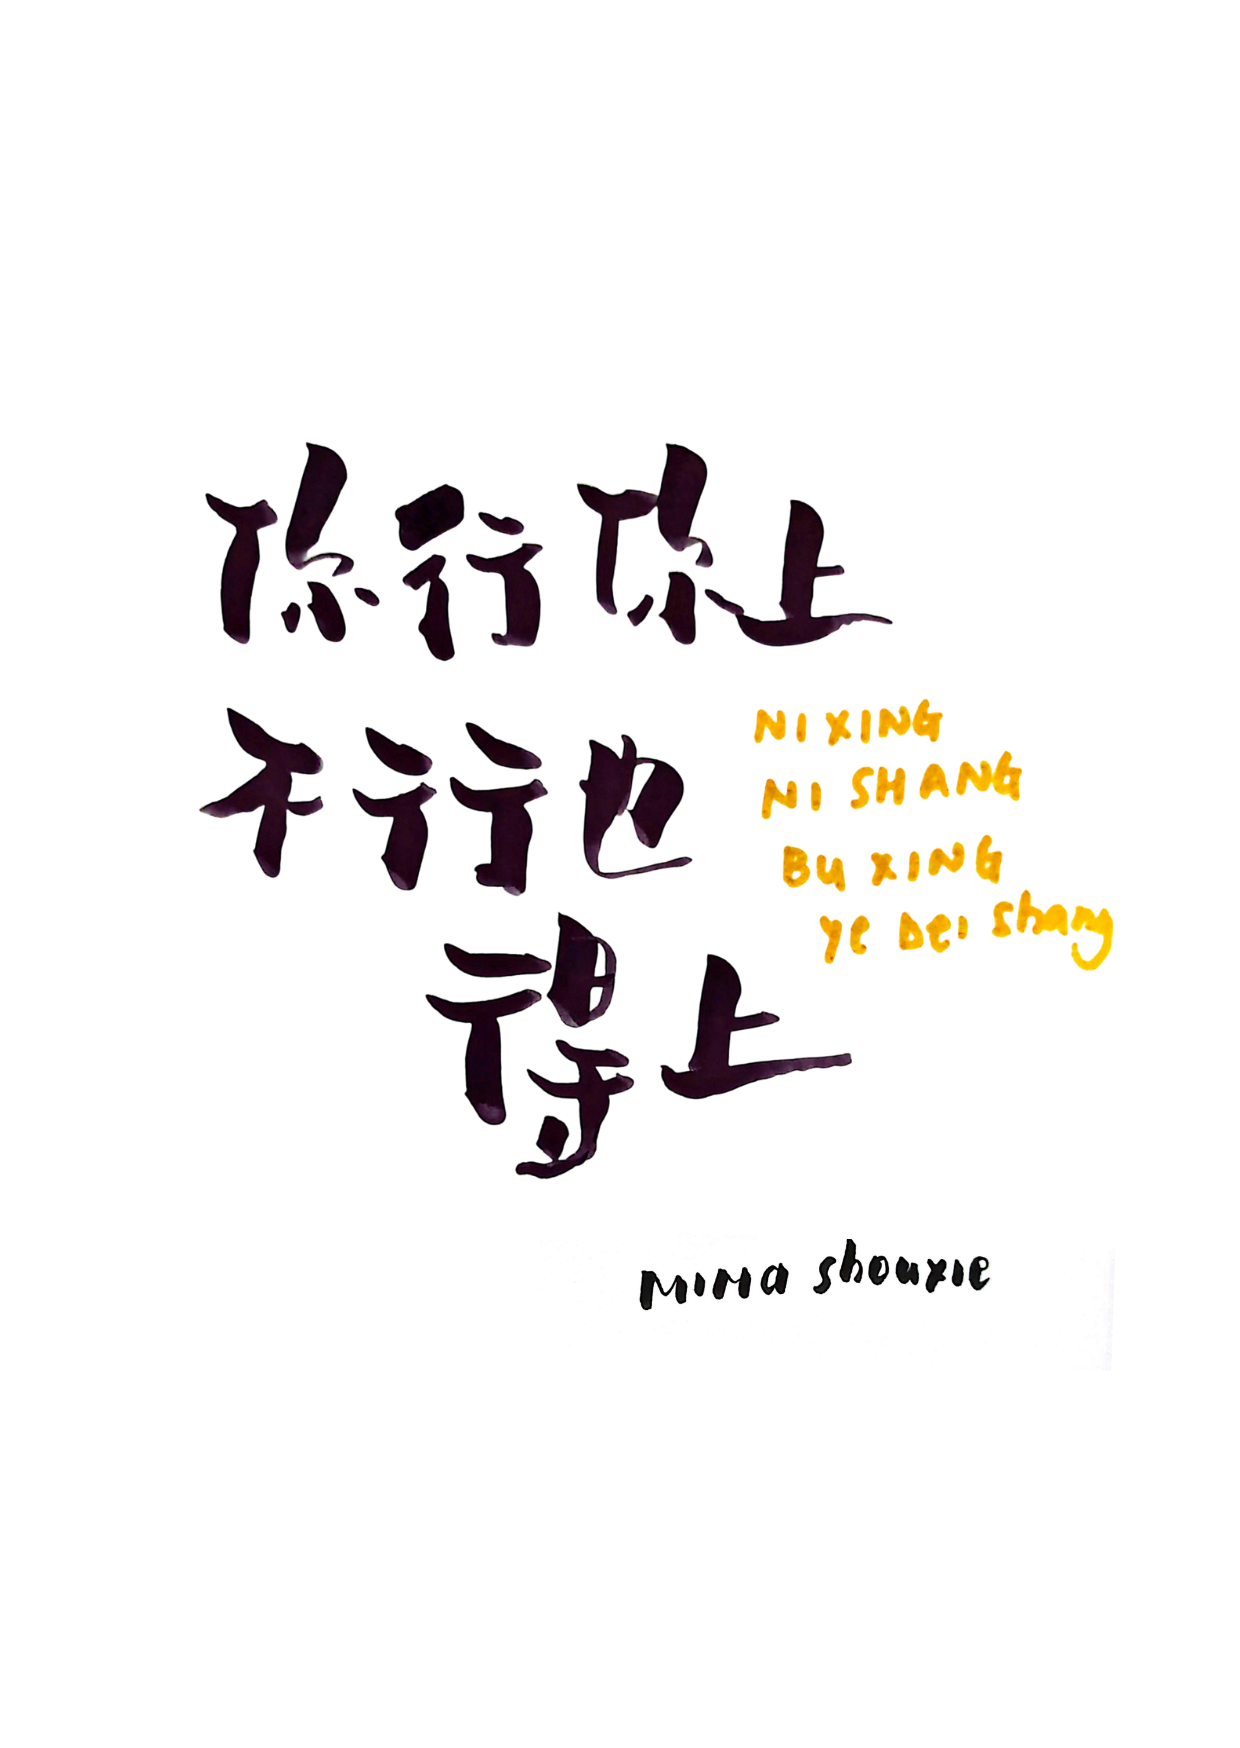 你行你上
不行也
得上
NI XING
NI SHANG
BU XING
Ye Dei shang
MIMA shouxie